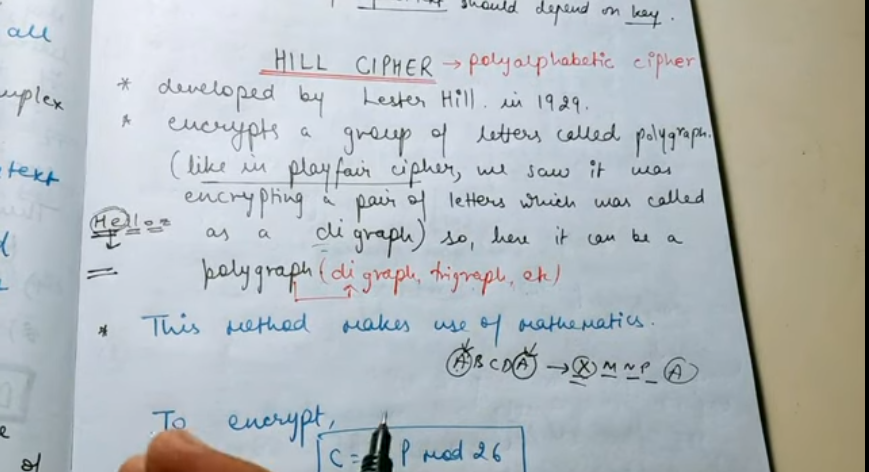 should depend on key.
all
HILL CIPHER → polyalphabetic cipher
* developed by Lester Hill. in 1929.
* encrypts a group of letters called polygraph.
(like in playfair cipher, we saw it was
text
encrypting a pair of letters which was called
Hello
as a digraph) so, here it can be a
polygraph (digraph, trigraph, etc)
* This method makes use of mathematics.
ABCDA → XMNP A
To encrypt,
C = P mod 26
of